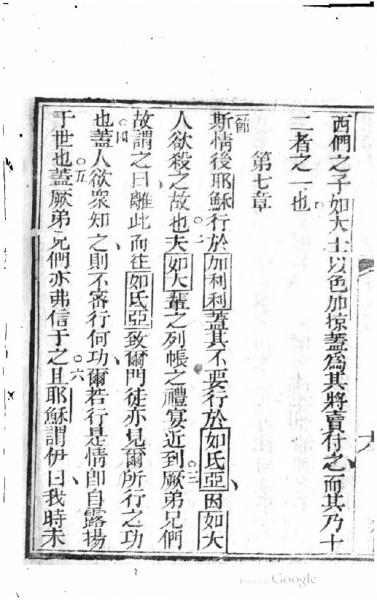 西們之子如大士以色加掠蓋為其將賣付之而其乃十
二者之一也
第七章
節
斯情後耶穌行於加利利蓋其不要行於如氏亞因如大
人欲殺之故也○二夫如大輩之列帳之禮宴近到○三厥弟兄們
故謂之曰離此而往如氏亞致爾門徒亦見爾所行之功
也○四蓋人欲眾知之則不密行何功爾若行是情卽自露揚
于世也○五蓋厥弟兄們亦弗信于之○六且耶穌謂伊曰我時未
Google